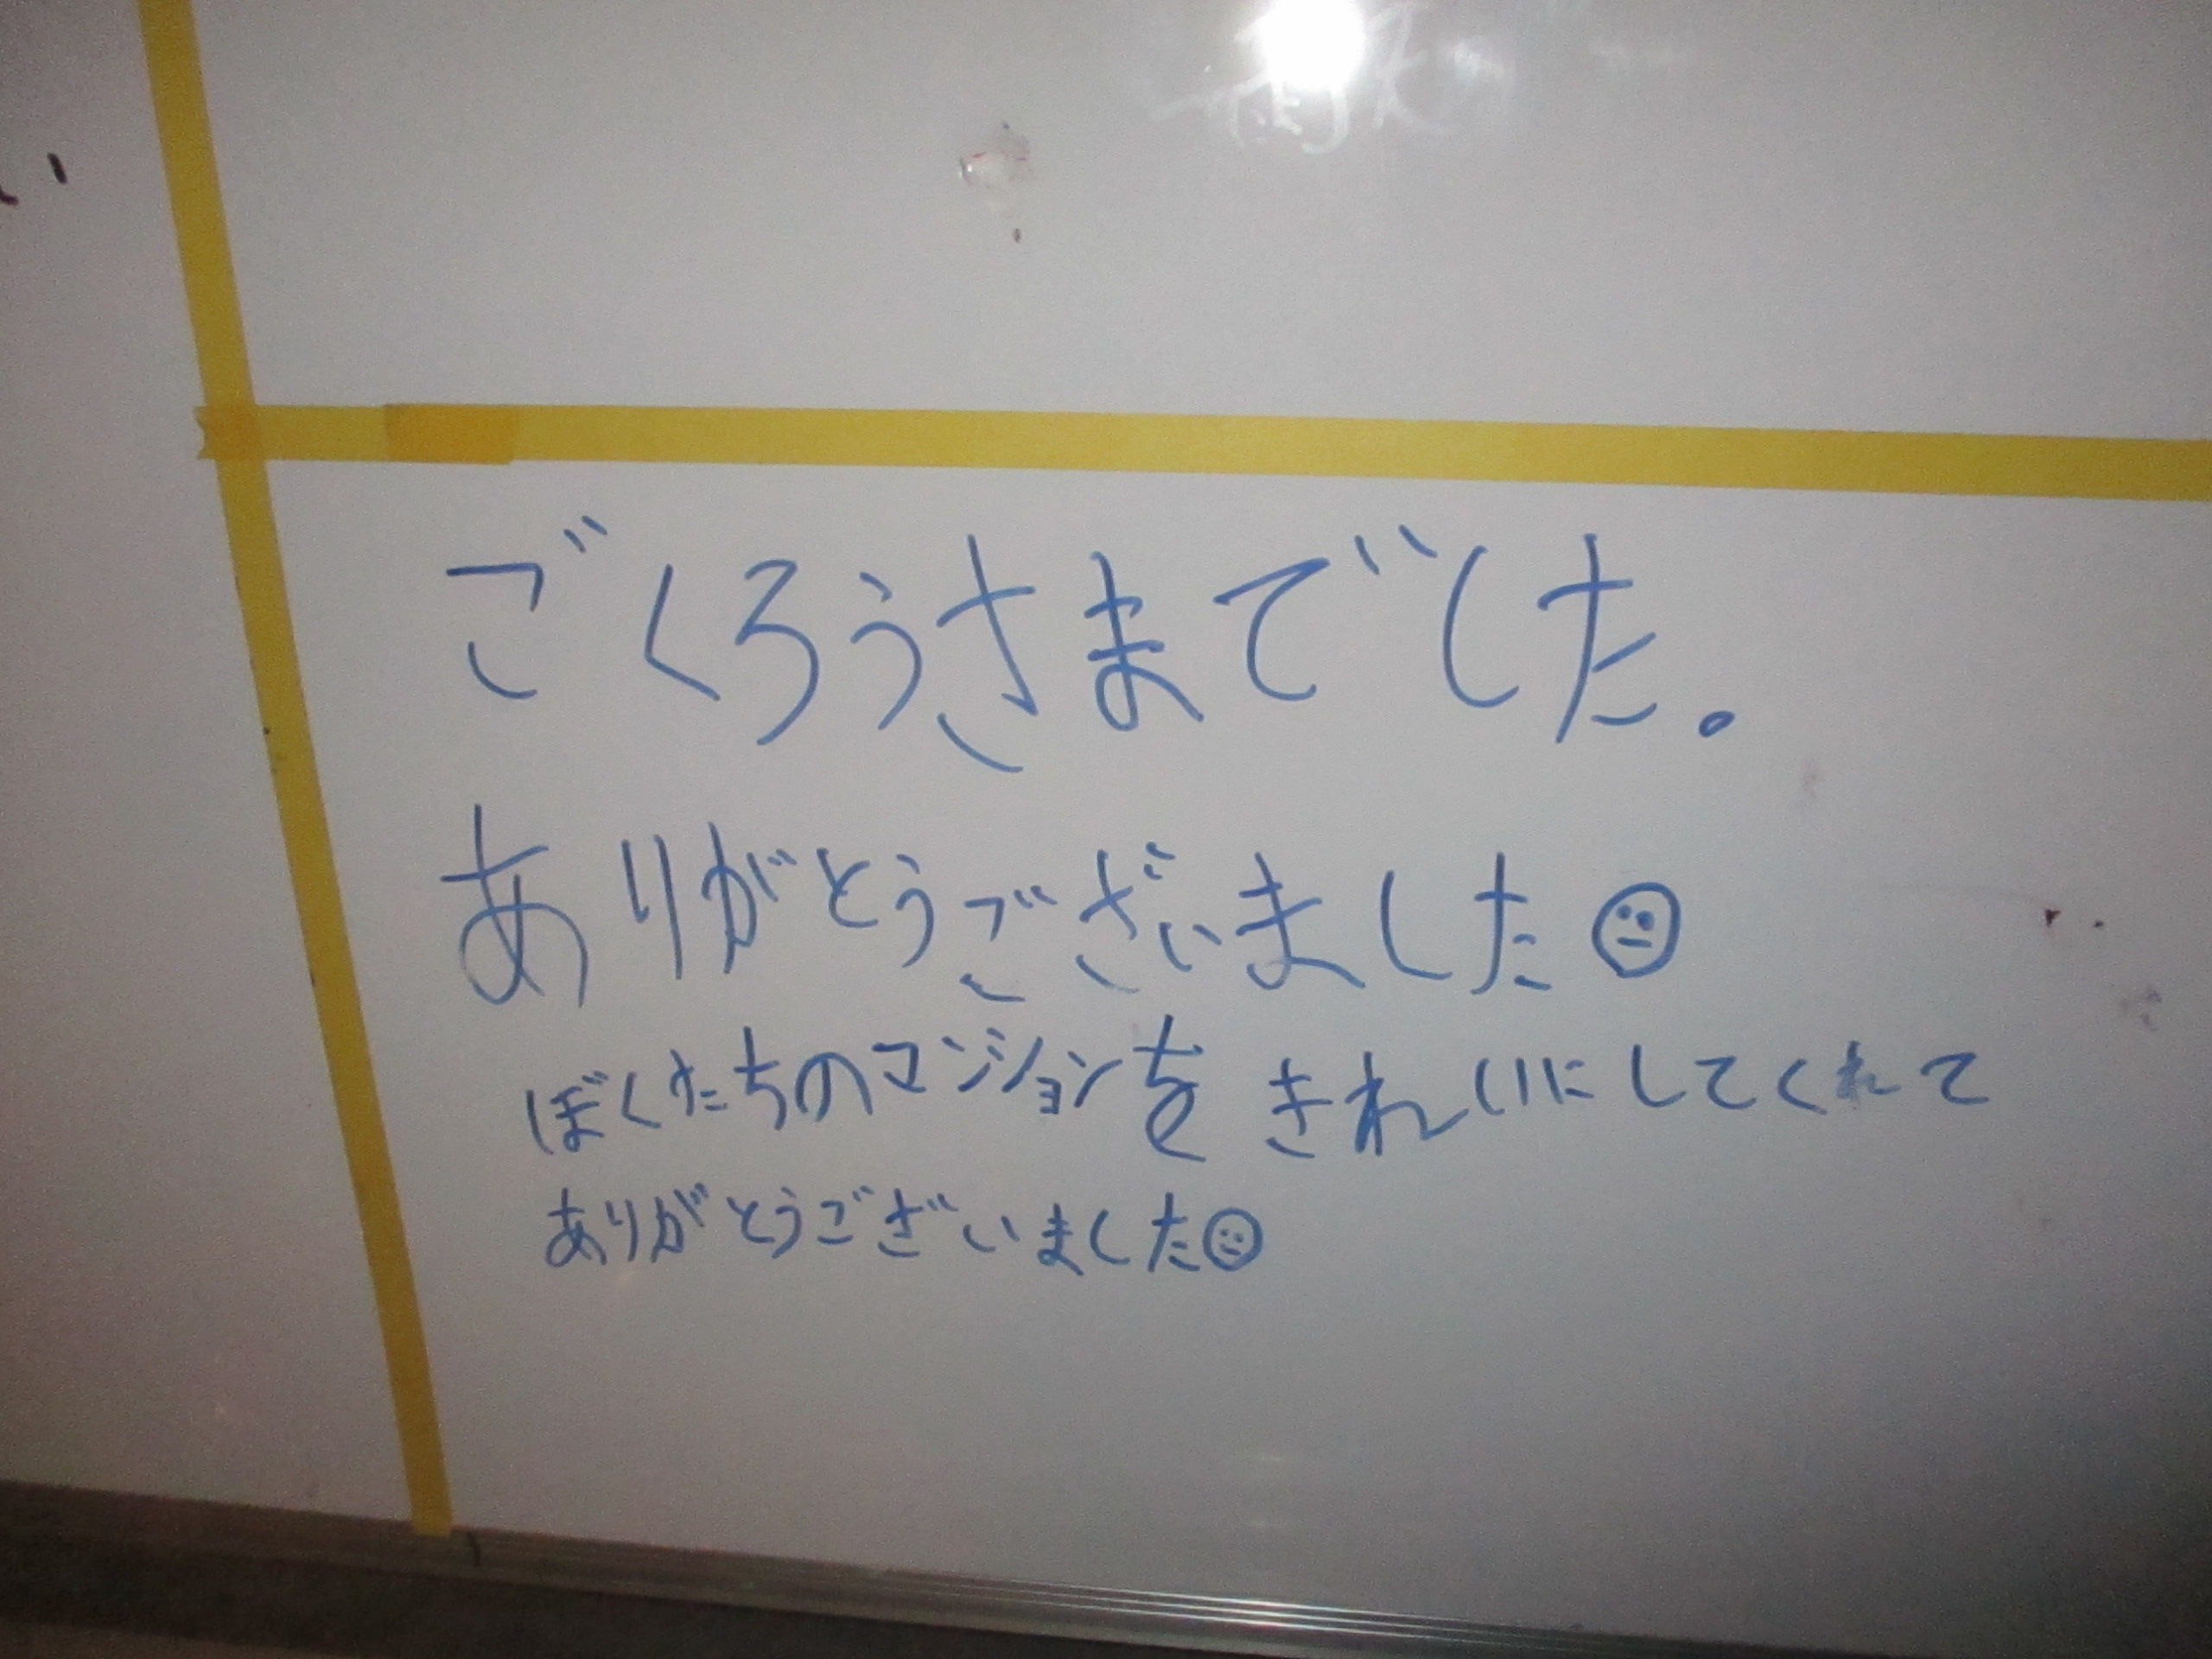 ごくろうさまでした。
ありがとうございました
ぼくたちのマンションをきれいにしてくれて
ありがとうございました